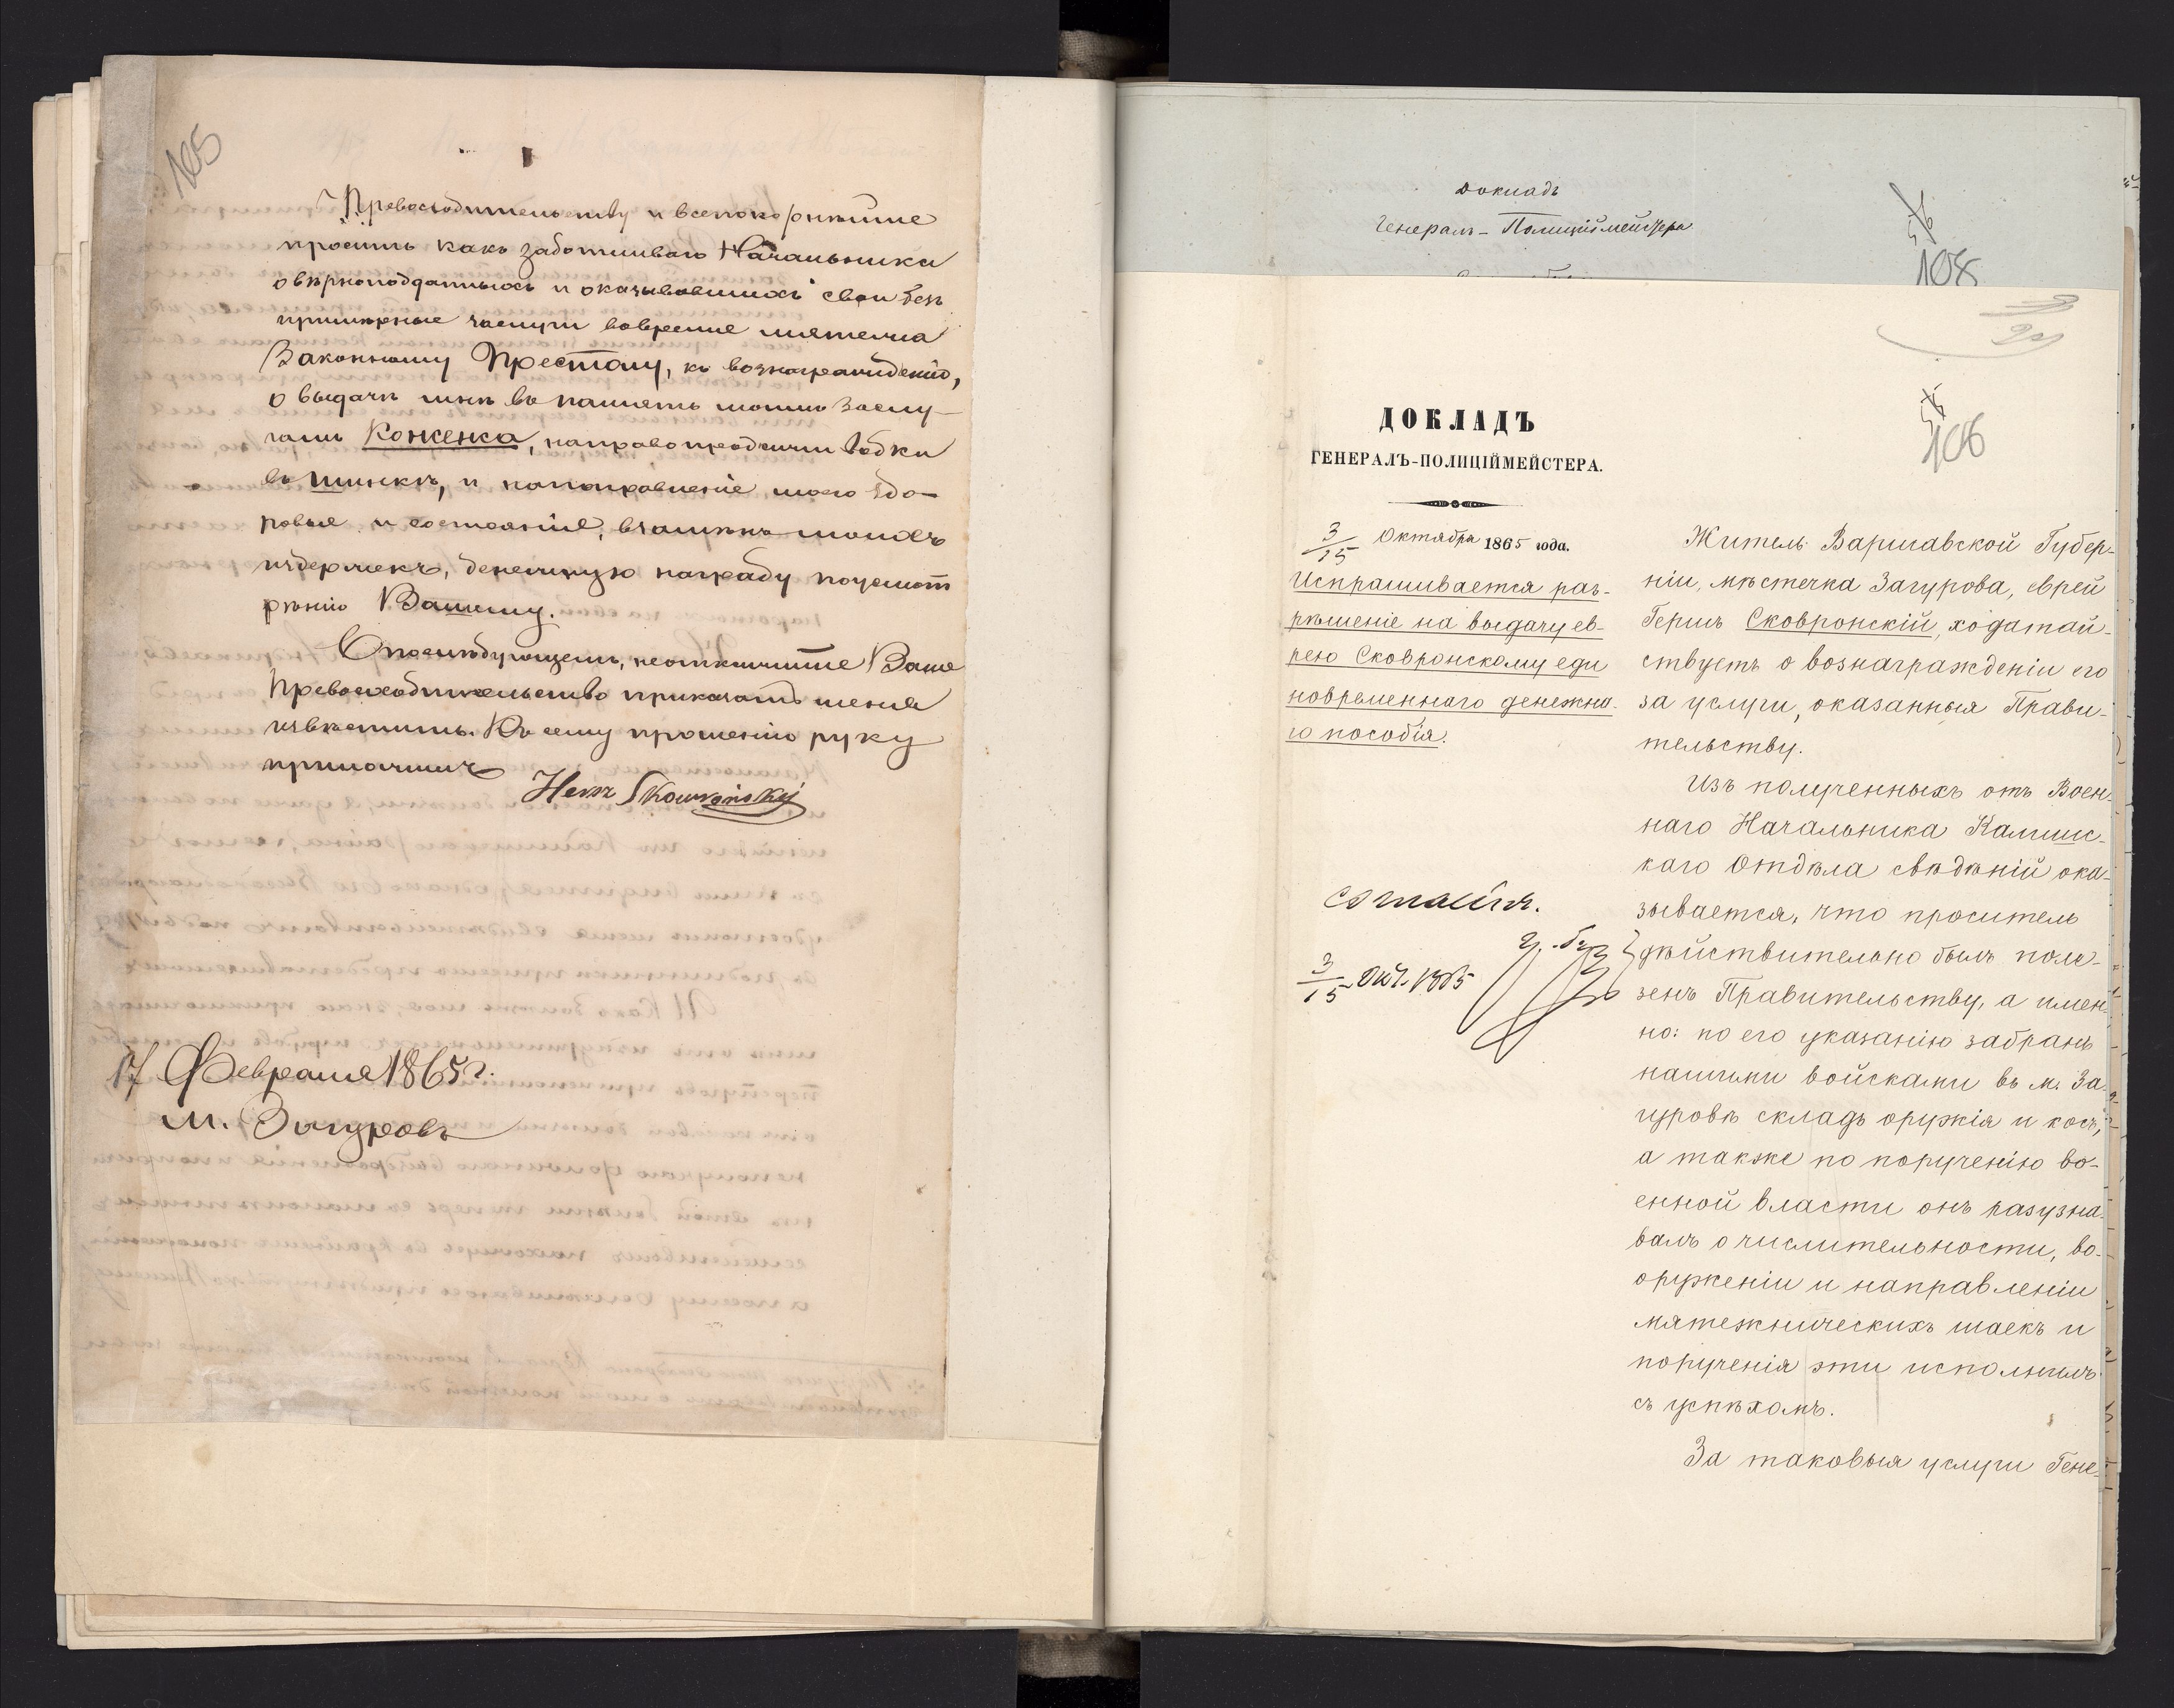 105
Превосходительству и всепокорнѣйше
просить какъ заботливаго Начальника
о вѣрноподданныхъ и оказывавшихъ свои без
примѣрные заслуги вовремя мятежа
Законному Престолу, къ вознагражденію,
о выдачѣ мнѣ въ память моимъ заслу-
гамъ Конженса, на право продажи водки
въ шинкѣ, и на поправленіе моего здо-
ровья и состоянія, взамѣнъ моихъ
издержекъ, денежную награду по усмот
рѣнію Вашему.
О послѣдующемъ, неоткажите Ваше
Превосходительство приказать меня
извѣстить. Къ сему прошенію руку
приложилъ
Hersz Skowronskij
17 Февраля 1865 г.
м. Загуровъ
Докладъ
Генералъ-Полиціймейстера
108
106
ДОКЛАДЪ
ГЕНЕРАЛЪ-ПОЛИЦІЙМЕЙСТЕРА.
3/15 Октября 1865 года.
Испрашивается раз-
рѣшеніе на выдачу ев-
рею Сковронскому еди
новременнаго денежна-
го пособія.
Согласенъ.
3/15 Окт. 1865
Житель Варшавской Губер-
ніи, мѣстечка Загурова, еврей
Гершъ Сковронскій, ходатай-
ствуетъ о вознагражденіи его
за услуги, оказанныя Прави-
тельству.
Изъ полученныхъ отъ Воен-
наго Начальника Калишс-
каго Отдѣла свѣдѣній ока-
зывается, что проситель
дѣйствительно былъ поле-
зенъ Правительству, а имен-
но: по его указанію забранъ
нашими войсками въ м. За-
гуровѣ складъ оружія и косъ,
а также по порученію во-
енной власти онъ разузна-
валъ о числительности, во-
оруженіи и направленіи
мятежническихъ шаекъ и
порученія эти исполнилъ
съ успѣхомъ.
За таковыя услуги Гене-